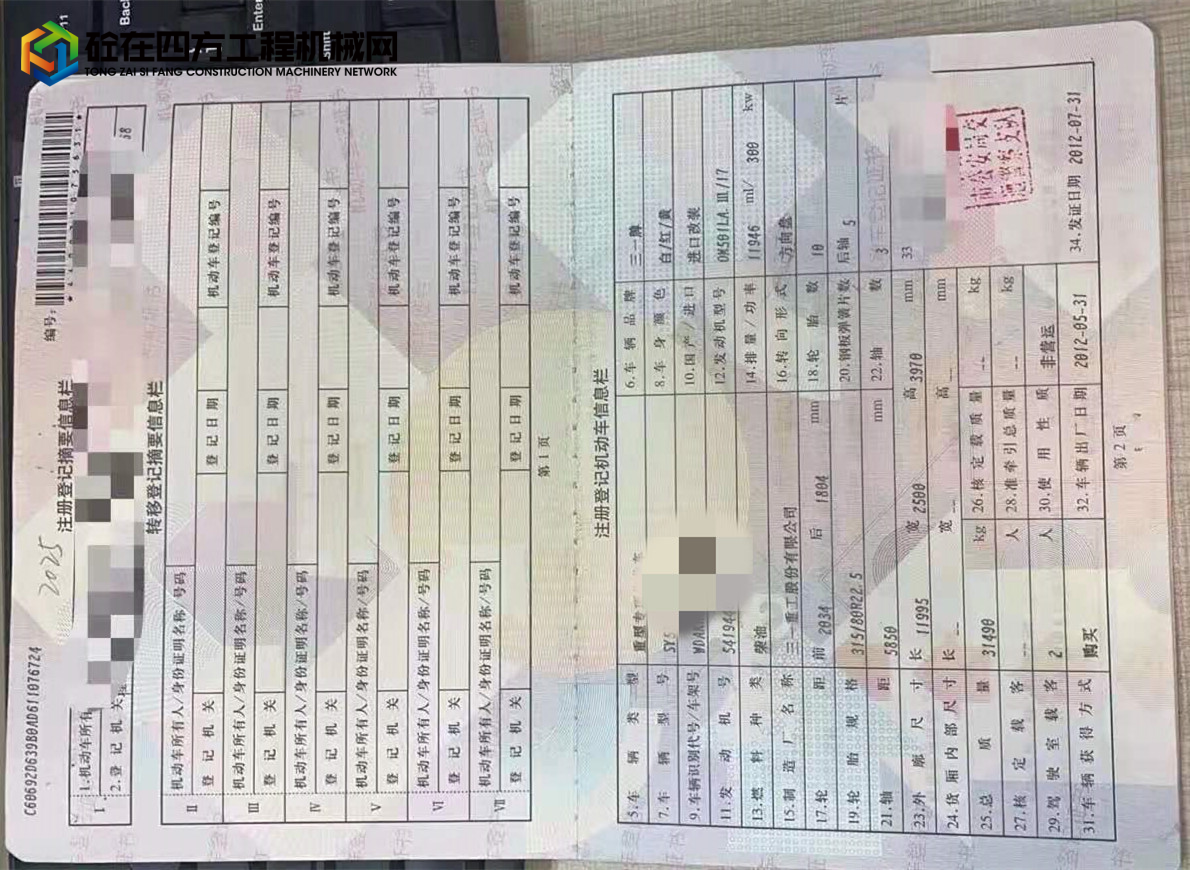 砼在四方工程机械网
TONG ZAI SI FANG CONSTRUCTION MACHINERY NETWORK
Enter
C60692D639B0AD611076724
2025
注册登记摘要信息栏
编号:
Ⅰ
1.机动车所有
2.登记机关
转移登记摘要信息栏
Ⅱ
机动车所有人/身份证明名称/号码
登记机关 登记日期 机动车登记编号
Ⅲ
机动车所有人/身份证明名称/号码
登记机关 登记日期 机动车登记编号
Ⅳ
机动车所有人/身份证明名称/号码
登记机关 登记日期 机动车登记编号
Ⅴ
机动车所有人/身份证明名称/号码
登记机关 登记日期 机动车登记编号
Ⅵ
机动车所有人/身份证明名称/号码
登记机关 登记日期 机动车登记编号
Ⅶ
机动车所有人/身份证明名称/号码
登记机关 登记日期 机动车登记编号
第1页
注册登记机动车信息栏
5.车辆类型 重型专 6.车辆品牌 三一牌
7.车辆型号 SY5 8.车身颜色 白/红/黄
9.车辆识别代号/车架号 10.国产/进口 进口改装
11.发动机号 54194 12.发动机型号 OM501LA.Ⅲ/17
13.燃料种类 柴油 14.排量/功率 11946 ml/ 300 kw
15.制造厂名称 三一重工股份有限公司 16.转向形式 方向盘
17.轮距 前 2034 后 1804 mm 18.轮胎数 10
19.轮胎规格 315/80R22.5 20.钢板弹簧片数 后轴 5 片
21.轴距 5850 mm 22.轴数 3
23.外廓尺寸 长 11995 宽 2500 高 3970 mm 33
24.货厢内部尺寸 长 -- 宽 -- 高 -- mm
25.总质量 31490 kg 26.核定载质量 -- kg
27.核定载客 -- 人 28.准牵引总质量 -- kg
29.驾驶室载客 2 人 30.使用性质 非营运
31.车辆获得方式 购买 32.车辆出厂日期 2012-05-31 34.发证日期 2012-07-31
市公安局交
第2页